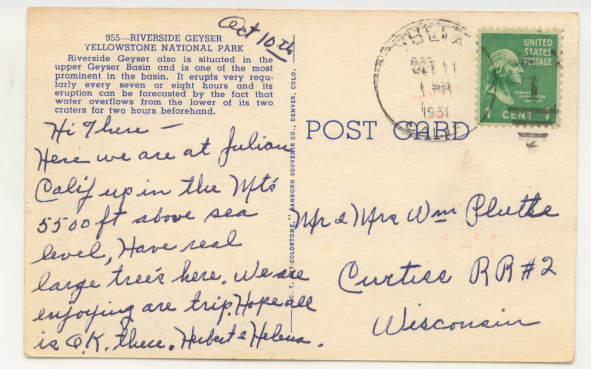 Oct 10th
955—RIVERSIDE GEYSER
YELLOWSTONE NATIONAL PARK
Riverside Geyser also is situated in the
upper Geyser Basin and is one of the most
prominent in the basin. It erupts very regu-
larly every seven or eight hours and its
eruption can be forecasted by the fact that
water overflows from the lower of its two
craters for two hours beforehand.
Hi There —
Here we are at Julian
Calif up in the Mts
5500 ft above sea
level, Have real
large tree's here. We are
enjoying are trip. Hope all
is O.K. there. Herbert & Helena.
SANBORN SOUVENIR CO., DENVER, COLO.
POST CARD
OCT 11
1 PM
1951
UNITED
STATES
POSTAGE
1 CENT 1
Mr & Mrs Wm Plutke
Curtiss RR#2
Wisconsin